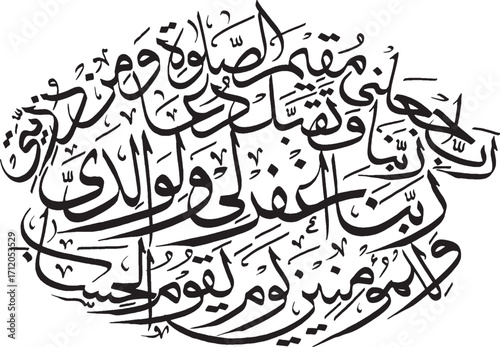 رب اجعلني مقيم الصلوة ومن ذريتي
ربنا وتقبل دعا
ربنا اغفرلي ولوالدي
وللمؤمنين يوم يقوم الحساب
Adobe Stock | #1712053529